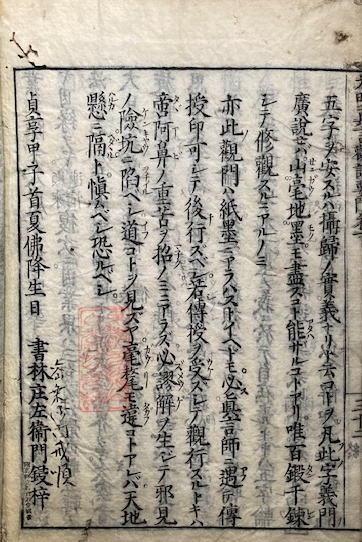 五字ヲ安スルハ攝歸ノ實義ナリ云コトヲ凡此字義門
廣説セハ山毫地墨モ盡スコト能ザルコトアリ唯百鍛千錬
シテ修觀スルニアルノミ
亦此觀門ハ紙墨ニアラハストイヘドモ必真言師ニ遇テ傳
授印可シテ後行スベシ若傳授ヲ受ズシテ觀行スルトキハ
啻阿鼻ノ重苦ヲ招ノミニアラズ必謬解ヲ生ジテ邪見
ノ險坑ニ陷ベシ道コトヲ見ズヤ毫釐モ違コトアレバ天地
懸ニ隔ト慎ムベシ恐ルベシ
貞享甲子首夏佛降生日
書林庄左衛門鋟梓